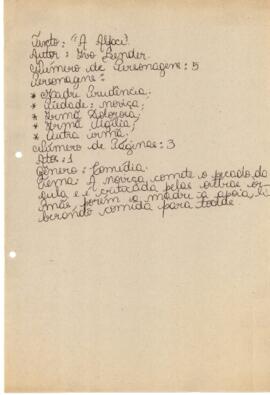 Texto: "A
Autor: Ivo Bender.
Número de Personagens: 5
Personagens:
* Madre Prudência;
* Piedade: noviça;
* Irmã
* Irmã
* Outra irmã.
Número de Páginas: 3
Atos: 1
Gênero: Comédia.
Tema: A noviça comete o pecado da
gula e é criticada pelas outras ir-
mãs porém a madre a apoia li-
berando comida para